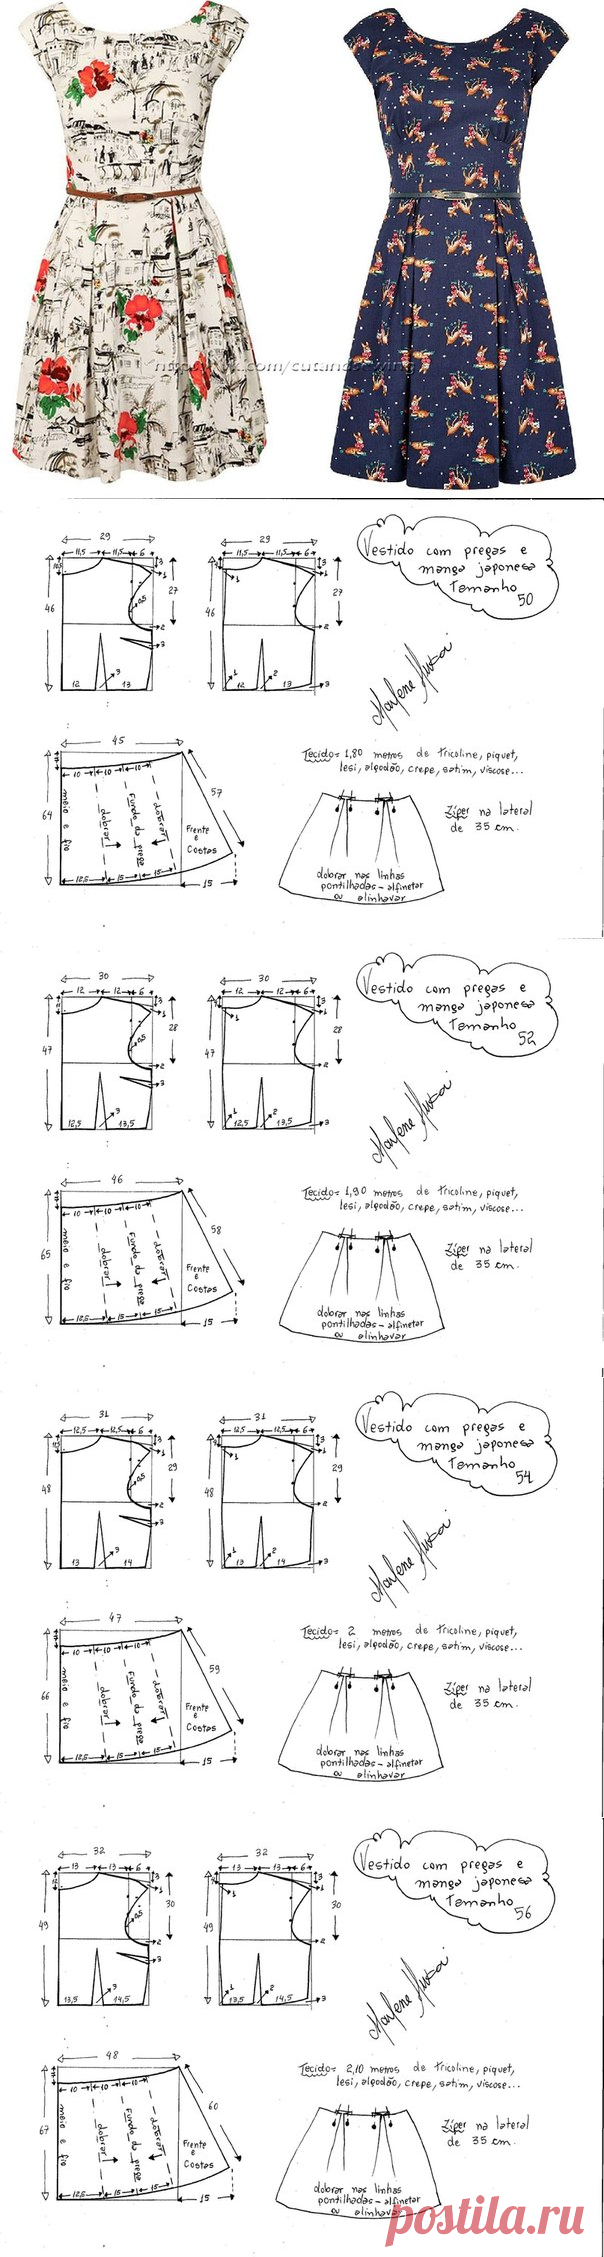 29
11,5 11,5 6
3
1
46
27
0,5
2
3
3
12 13
29
11,5 11,5 6
3
1
46
27
2
1 2
12 13
3
Vestido com pregas e
manga japonesa
Tamanho
50
Marlene Mukai
45
10 10 10
64
57
meio e fio
dobrar
Fundo da prega
dobrar
Frente
e
Costas
12,5 15 15
15
Tecido= 1,80 metros de tricoline, piquet,
lesi, algodão, crepe, satim, viscose...
Zíper na lateral
de 35 cm.
dobrar nas linhas
pontilhadas - alfinetar
ou alinhavar
30
12 12 6
3
1
47
28
0,5
2
3
3
12,5 13,5
30
12 12 6
3
1
47
28
2
1 2
12,5 13,5
3
Vestido com pregas e
manga japonesa
Tamanho
52
Marlene Mukai
46
10 10 10
65
58
meio e fio
dobrar
Fundo da prega
dobrar
Frente
e
Costas
12,5 15 15
15
Tecido= 1,90 metros de tricoline, piquet,
lesi, algodão, crepe, satim, viscose...
Zíper na lateral
de 35 cm.
dobrar nas linhas
pontilhadas - alfinetar
ou alinhavar
31
12,5 12,5 6
3
1
48
29
0,5
2
3
3
13 14
31
12,5 12,5 6
3
1
48
29
2
1 2
13 14
3
Vestido com pregas e
manga japonesa
Tamanho
54
Marlene Mukai
47
10 10 10
66
59
meio e fio
dobrar
Fundo da prega
dobrar
Frente
e
Costas
12,5 15 15
15
Tecido= 2 metros de tricoline, piquet,
lesi, algodão, crepe, satim, viscose...
Zíper na lateral
de 35 cm.
dobrar nas linhas
pontilhadas - alfinetar
ou alinhavar
32
13 13 6
3
1
49
30
0,5
2
3
3
13,5 14,5
32
13 13 6
3
1
49
30
2
1 2
13,5 14,5
3
Vestido com pregas e
manga japonesa
Tamanho
56
Marlene Mukai
48
10 10 10
67
60
meio e fio
dobrar
Fundo da prega
dobrar
Frente
e
Costas
12,5 15 15
15
Tecido= 2,10 metros de tricoline, piquet,
lesi, algodão, crepe, satim, viscose...
Zíper na lateral
de 35 cm.
dobrar nas linhas
pontilhadas - alfinetar
ou alinhavar
postila.ru